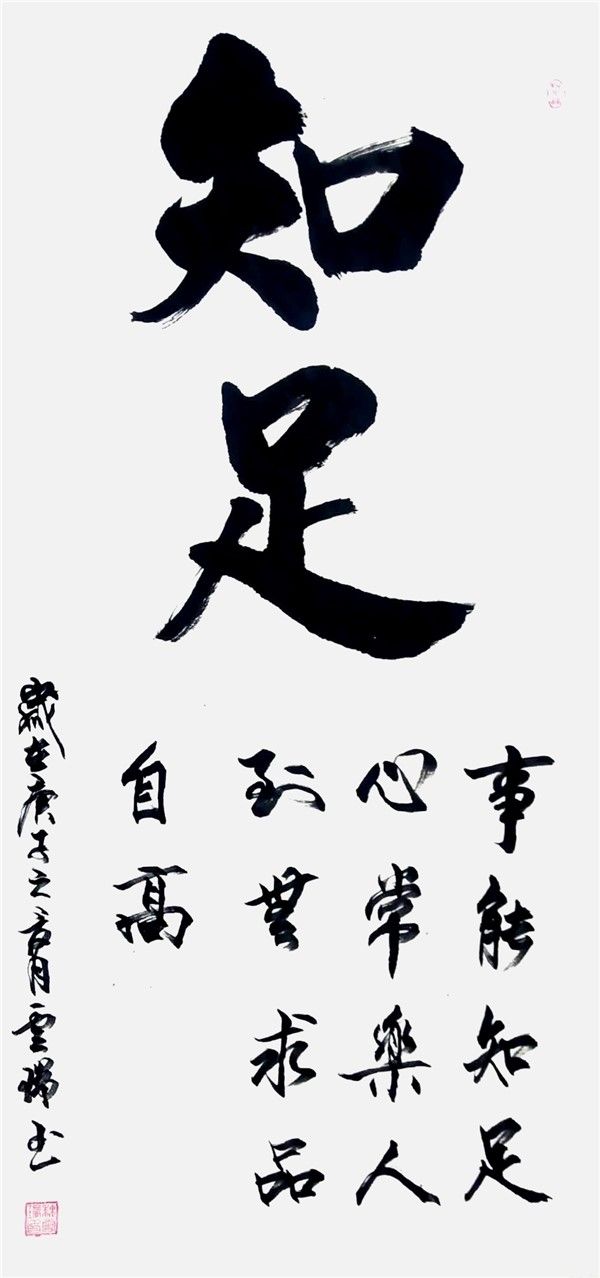 知足
事能知足
心常樂人
到無求品
自高
歲在庚子之春月雲瑞书